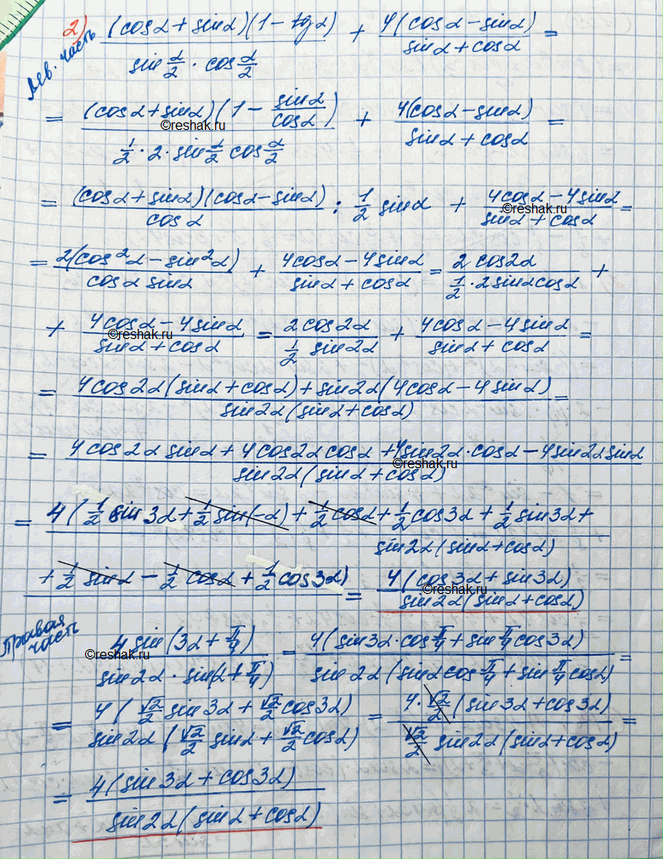 2) (cosα + sinα)(1 - tgα) / (sin α/2 · cos α/2) + 4(cosα - sinα) / (sinα + cosα) =
Лев. часть
= (cosα + sinα)(1 - sinα/cosα) / (1/2 · 2 · sin α/2 cos α/2) + 4(cosα - sinα) / (sinα + cosα) =
©reshak.ru
= (cosα + sinα)(cosα - sinα) / cosα : 1/2 sinα + (4cosα - 4sinα) / (sinα + cosα) =
©reshak.ru
= 2(cos²α - sin²α) / (cosα sinα) + (4cosα - 4sinα) / (sinα + cosα) = 2cos2α / (1/2 · 2sinαcosα) +
+ (4cosα - 4sinα) / (sinα + cosα) = 2cos2α / (1/2 sin2α) + (4cosα - 4sinα) / (sinα + cosα) =
©reshak.ru
= (4cos2α(sinα + cosα) + sin2α(4cosα - 4sinα)) / (sin2α(sinα + cosα)) =
= (4cos2α sinα + 4cos2α cosα + 4sin2α · cosα - 4sin2α sinα) / (sin2α(sinα + cosα))
©reshak.ru
= 4(1/2 sin3α + 1/2 sin(-α) + 1/2 cosα + 1/2 cos3α + 1/2 sin3α +
sin2α(sinα + cosα)
+ 1/2 sinα - 1/2 cosα + 1/2 cos3α) = 4(cos3α + sin3α) / (sin2α(sinα + cosα))
©reshak.ru
Правая часть
4sin(3α + π/4) / (sin2α · sin(α + π/4)) = 4(sin3α · cos π/4 + sin π/4 cos3α) / (sin2α(sinαcos π/4 + sin π/4 cosα)) =
©reshak.ru
= 4(√2/2 sin3α + √2/2 cos3α) / (sin2α(√2/2 sinα + √2/2 cosα)) = 4 · √2/2 (sin3α + cos3α) / (√2/2 sin2α(sinα + cosα)) =
= 4(sin3α + cos3α) / (sin2α(sinα + cosα))